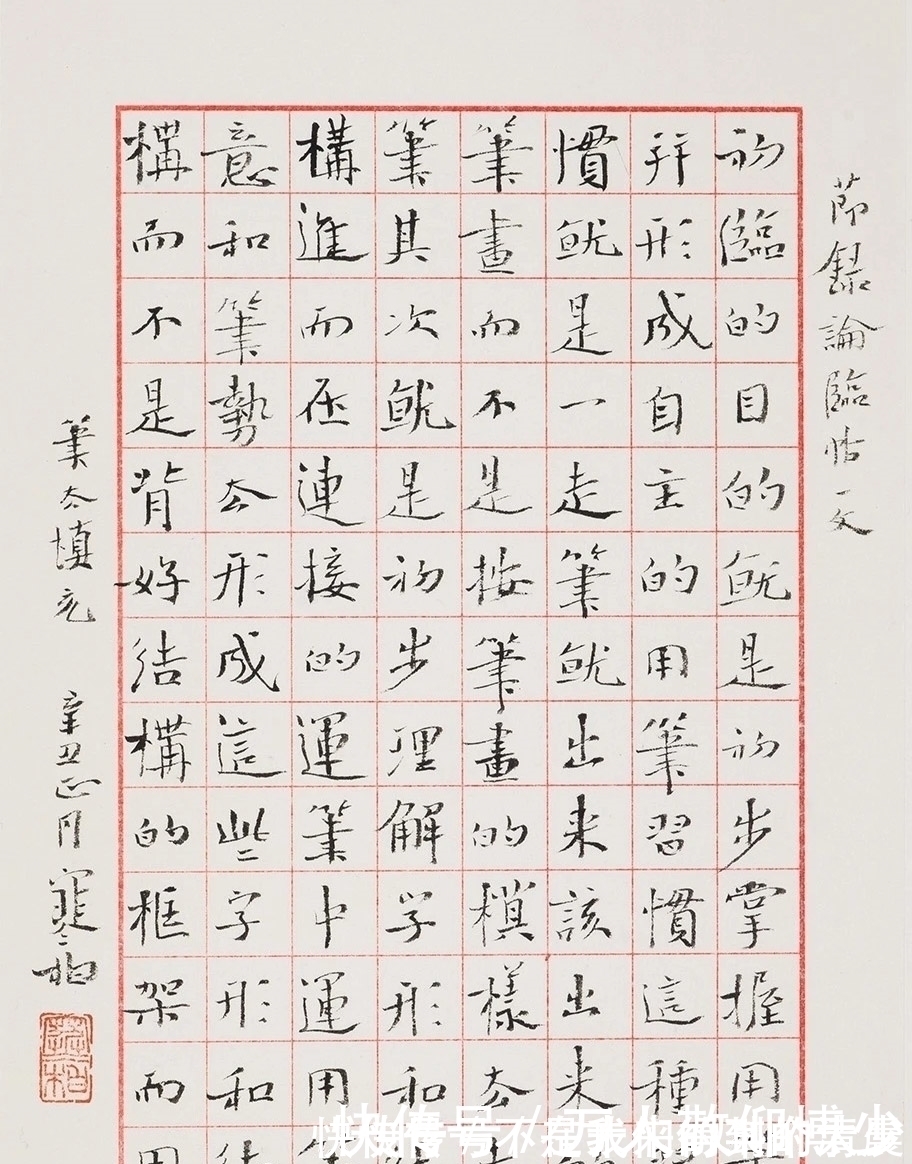 節錄論臨帖一文
初臨的目的就是初步掌握用
并形成自主的用筆習慣這種
慣就是一走筆就出来該出来的
筆畫而不是按筆畫的模樣去
筆其次就是初步理解字形和
構進而在連接的運筆中運用
意和筆勢去形成這些字形和
構而不是背好結構的框架而
辛丑正月
快传号/万人敬仰博少